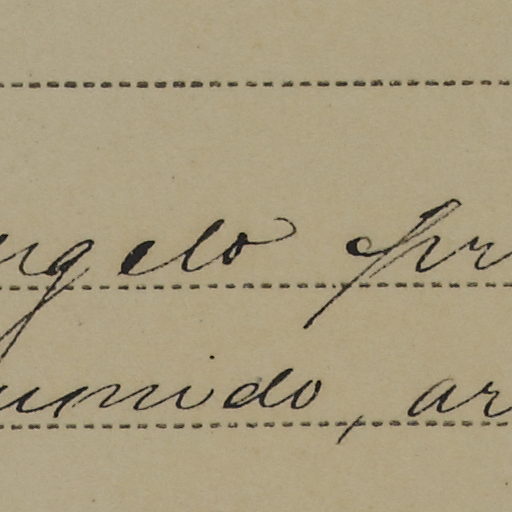 ngelo pr
umido, ar